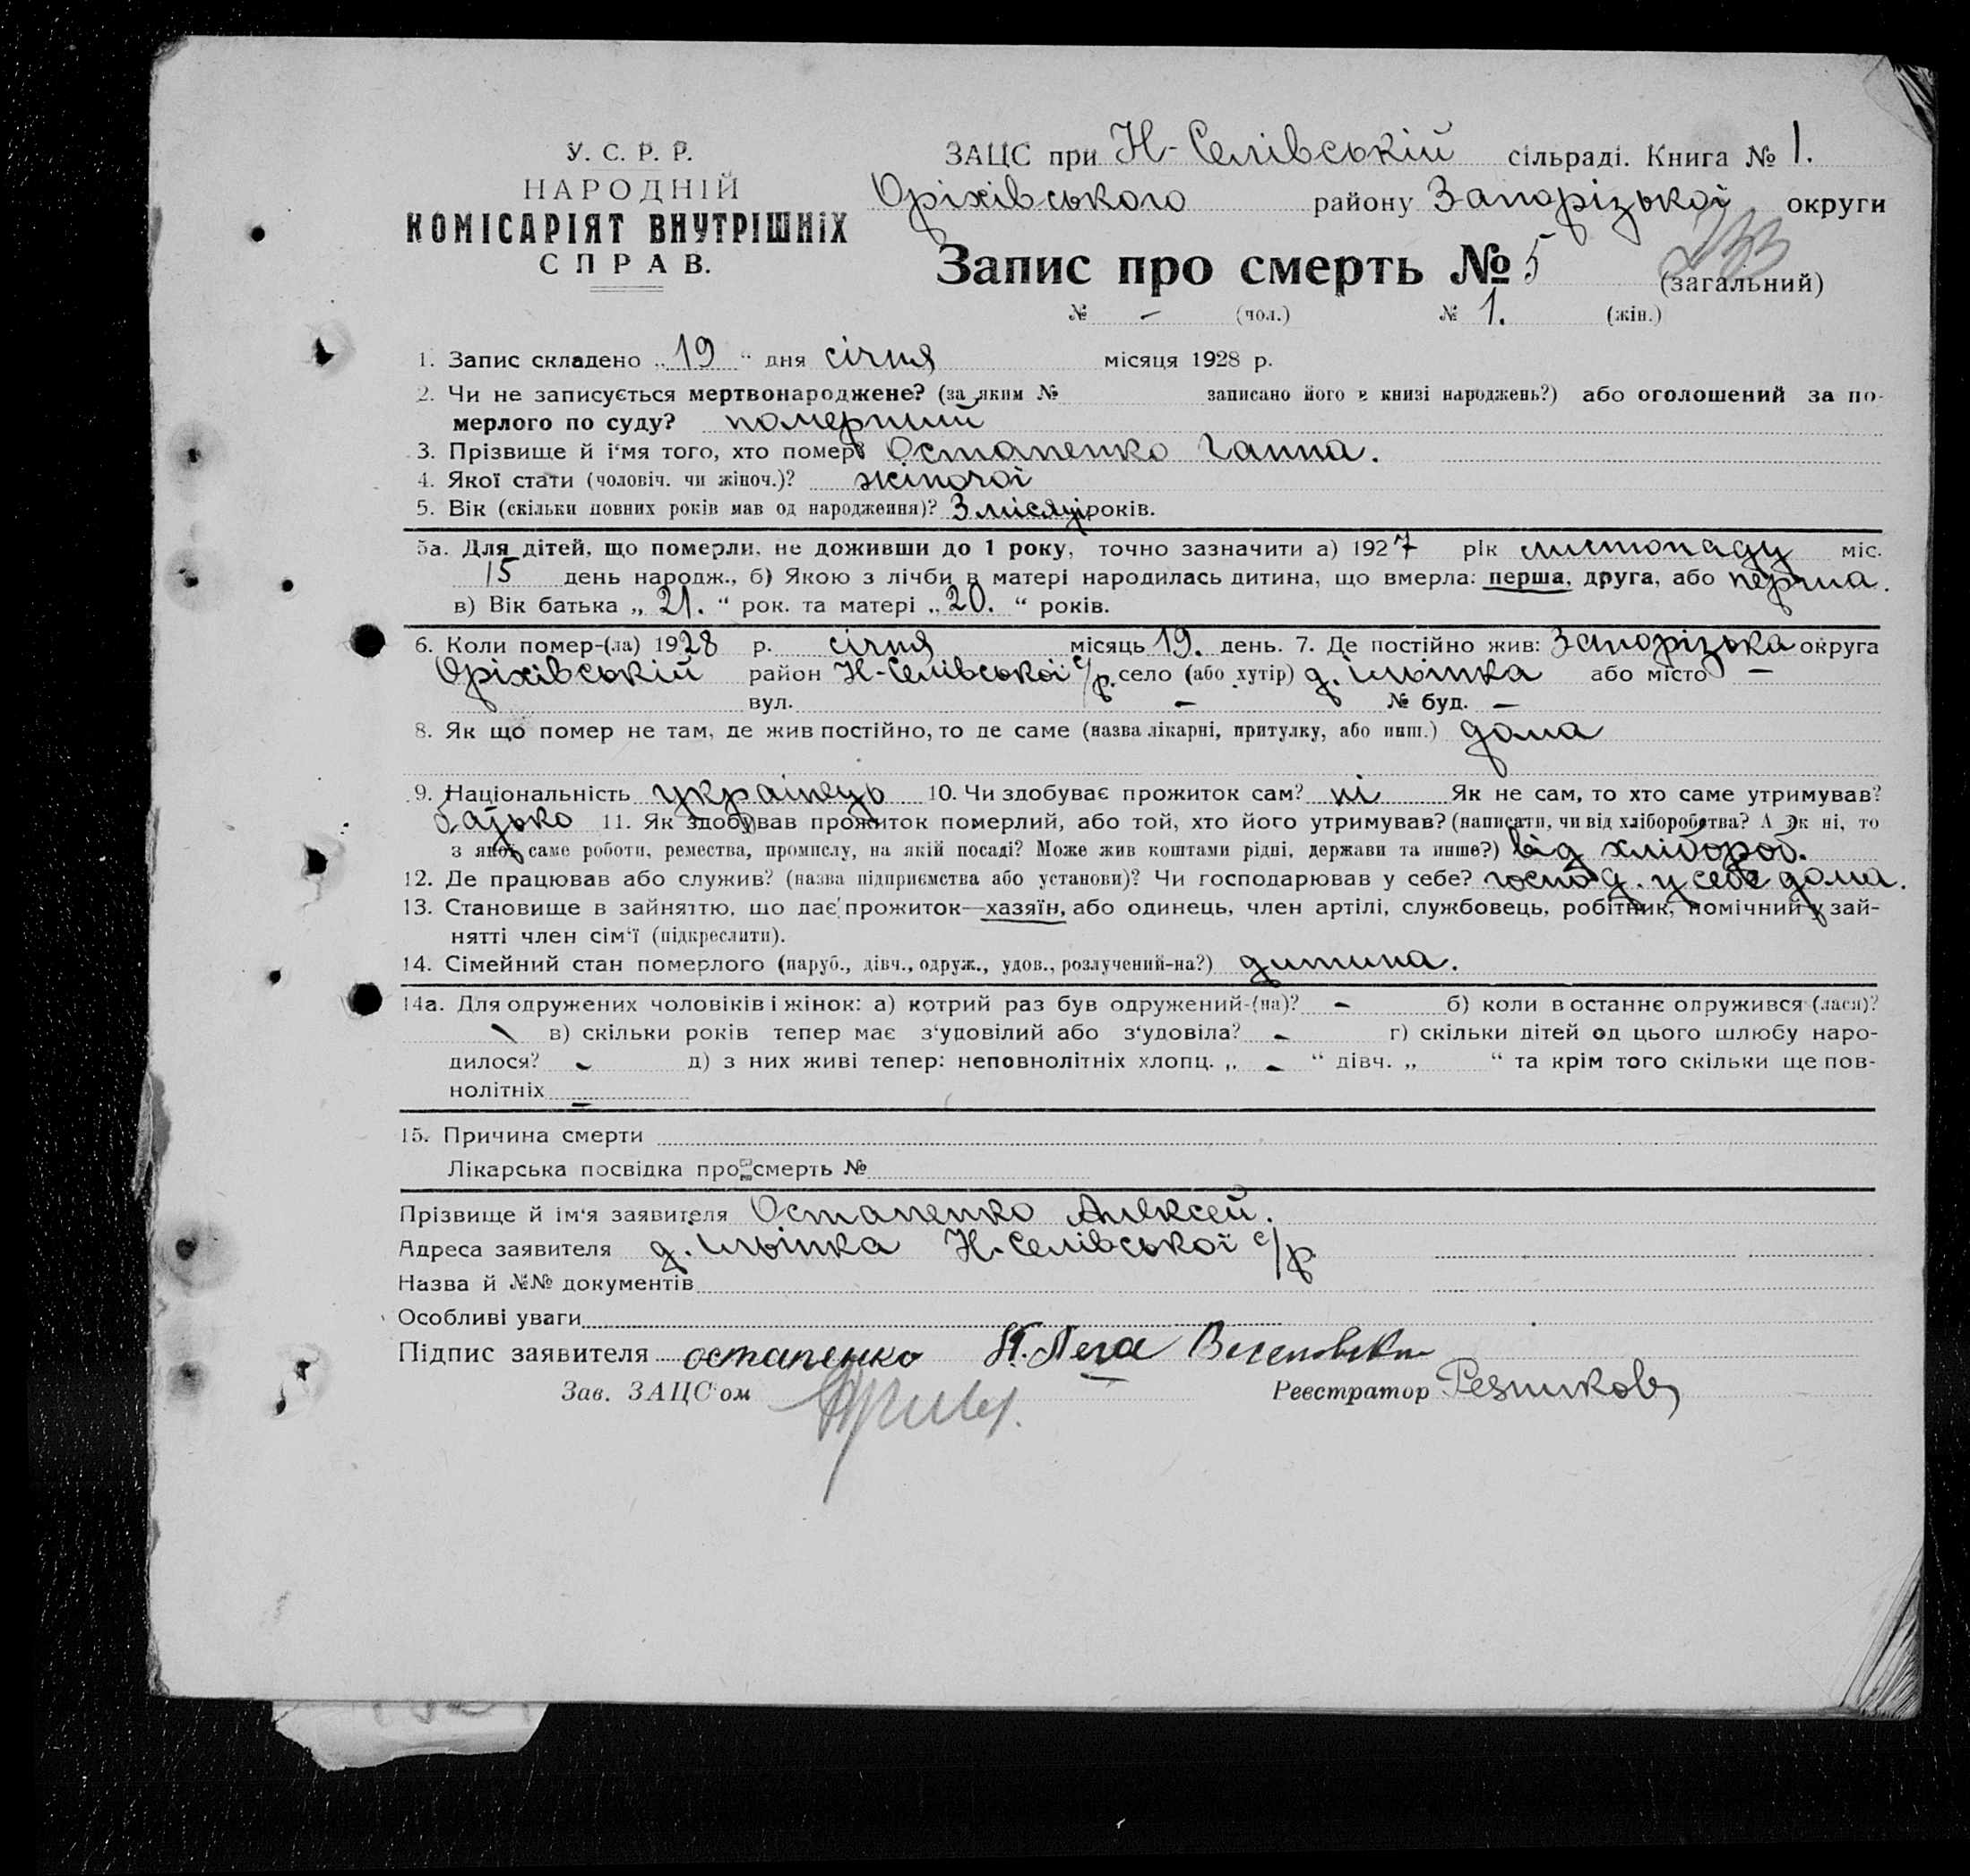 У. С. Р. Р.
НАРОДНІЙ
КОМІСАРІЯТ ВНУТРІШНІХ
СПРАВ.
ЗАЦС при Н-Селівській сільраді. Книга № 1.
Оріхівського району Запорізької округи
Запис про смерть № 5 (загальний)
233
№ - (чол.) № 1. (жін.)
1. Запис складено „19“ дня січня місяця 1928 р.
2. Чи не записується мертвонароджене? (за яким № записано його в книзі народжень?) або оголошений за по-
мерлого по суду? померший
3. Прізвище й ім'я того, хто помер? Остапенко Ганна.
4. Якої стати (чоловіч. чи жіноч.)? жіночої
5. Вік (скільки повних років мав од народження)? 3 місяці років.
5а. Для дітей, що померли, не доживши до 1 року, точно зазначити а) 1927 рік листопаду міс.
15 день народж., б) Якою з лічби в матері народилась дитина, що вмерла: перша, друга, або перша.
в) Вік батька „21.“ рок. та матері „20.“ років.
6. Коли помер-(ла) 1928 р. січня місяць 19. день. 7. Де постійно жив: Запорізька округа
Оріхівській район Н-Селівської с/р. село (або хутір) д. Ільінка або місто —
вул. - № буд. —
8. Як що помер не там, де жив постійно, то де саме (назва лікарні, притулку, або инш.) дома
9. Національність українець 10. Чи здобуває прожиток сам? ні Як не сам, то хто саме утримував?
батько 11. Як здобував прожиток померлий, або той, хто його утримував? (написати, чи від хліборобства? А як ні, то
з якої саме роботи, ремества, промислу, на якій посаді? Може жив коштами рідні, держави та инше?) від хлібороб.
12. Де працював або служив? (назва підприємства або установи)? Чи господарював у себе? господ. у себе дома.
13. Становище в зайняттю, що дає прожиток—хазяїн, або одинець, член артілі, службовець, робітник, помічний у зай-
нятті член сім'ї (підкреслити).
14. Сімейний стан померлого (паруб., дівч., одруж., удов., розлучений-на?) дитина.
14а. Для одружених чоловіків і жінок: а) котрий раз був одружений-(на)? - б) коли в останнє одружився (лася)?
- в) скільки років тепер має з'удовілий або з'удовіла? - г) скільки дітей од цього шлюбу наро-
дилося? - д) з них живі тепер: неповнолітніх хлопц. „ - “ дівч. „ “ та крім того скільки ще пов-
нолітніх -
15. Причина смерти
Лікарська посвідка про смерть №
Прізвище й ім'я заявителя Остапенко Алексей.
Адреса заявителя д. Ільінка Н-Селівської с/р
Назва й №№ документів
Особливі уваги
Підпис заявителя остапенко
Зав. ЗАЦС'ом Реєстратор Резников